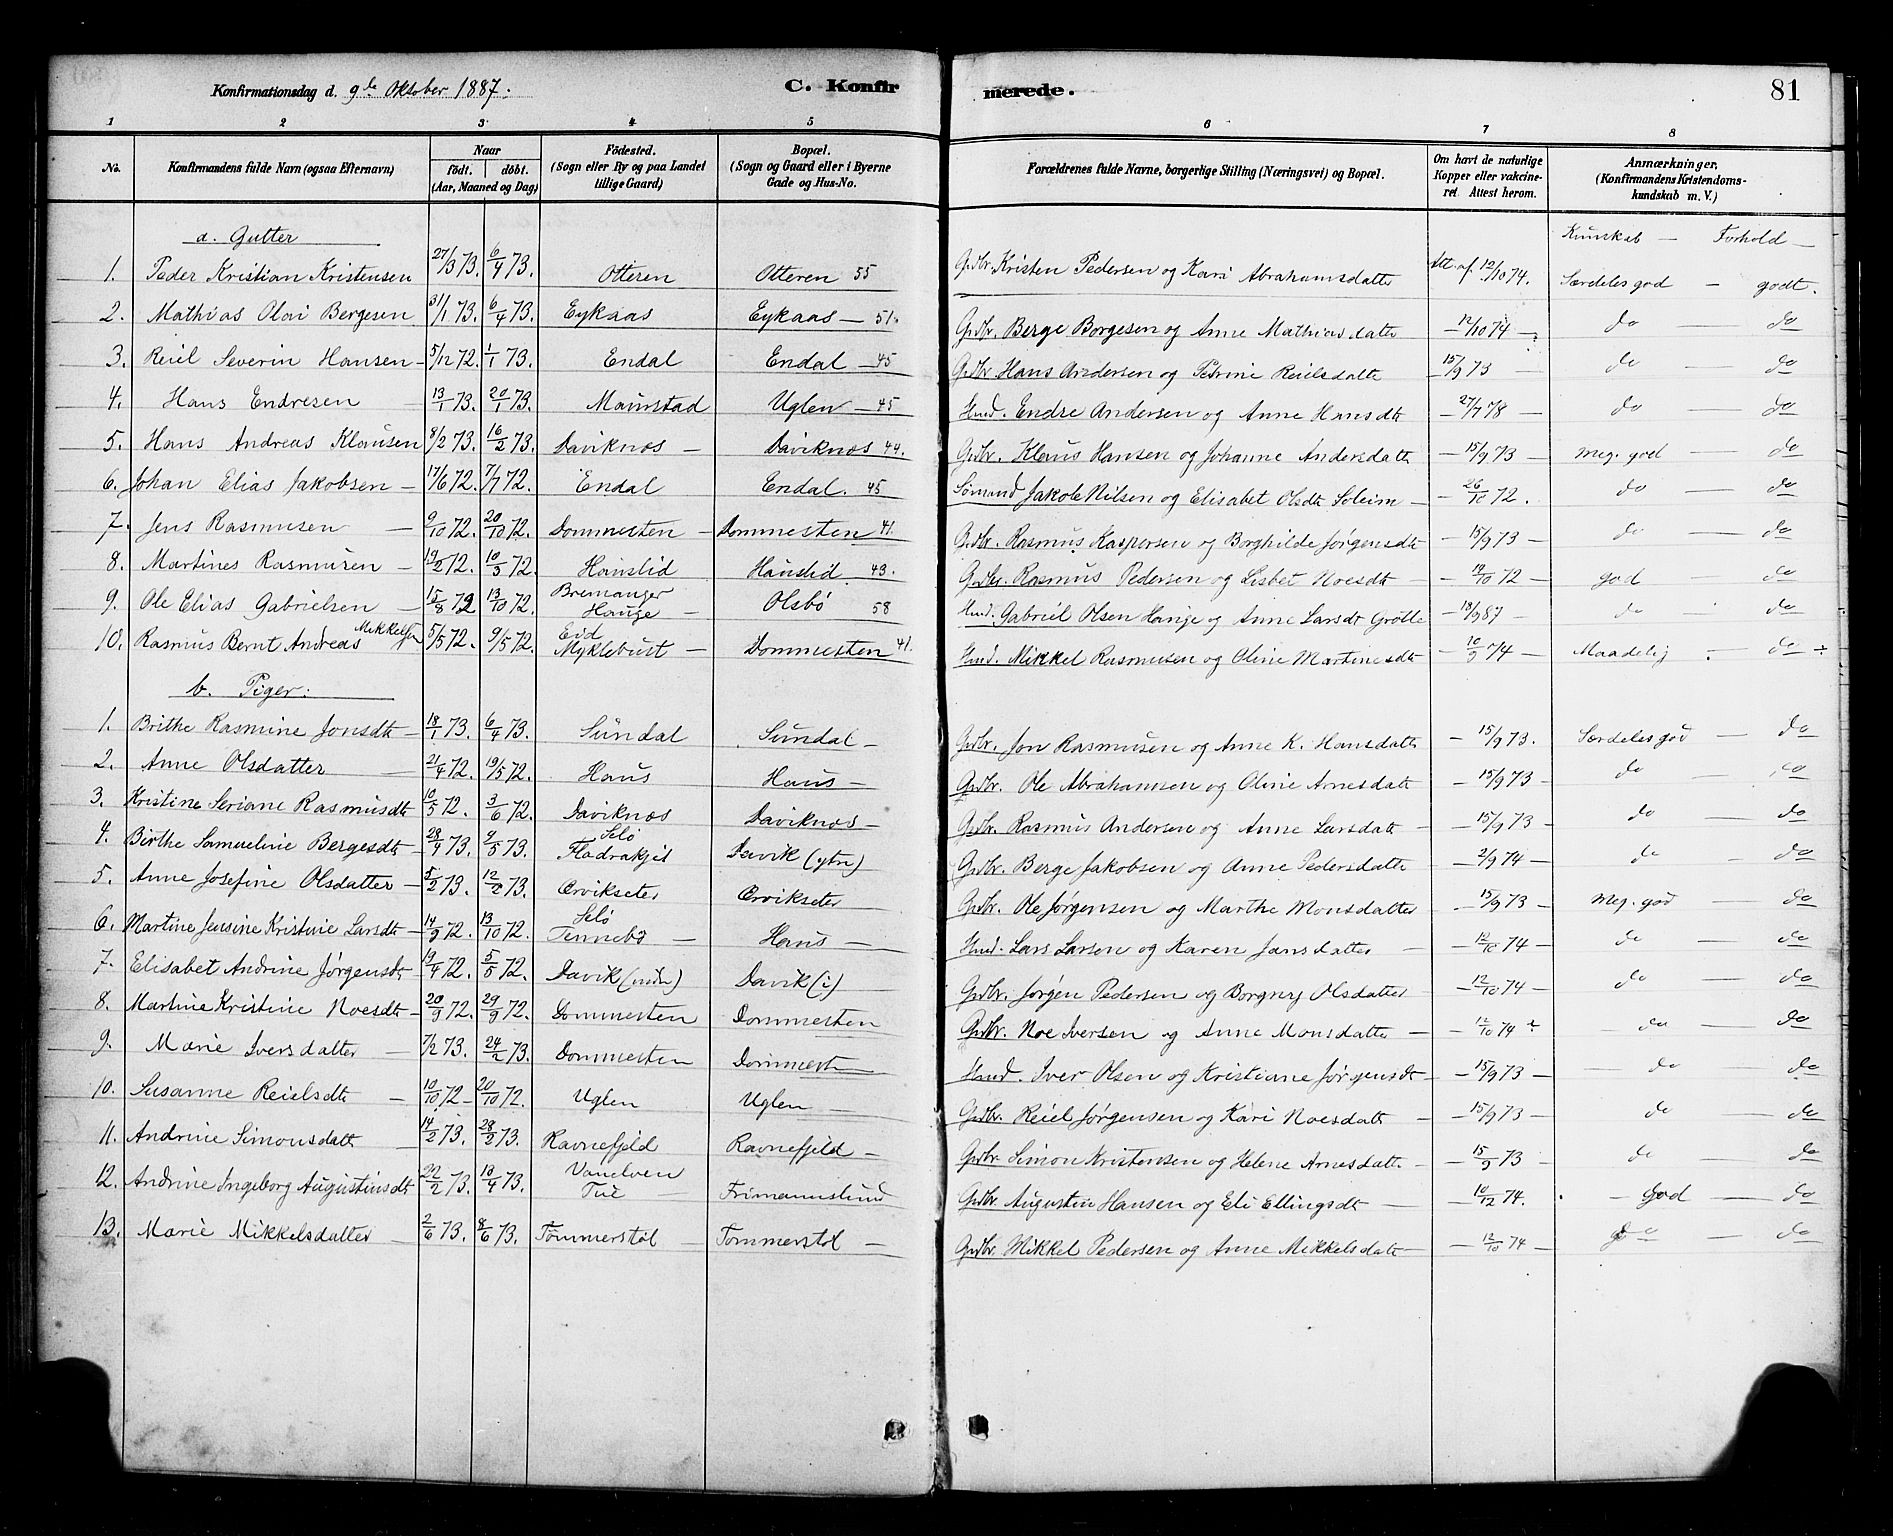 Konfirmationsdag d. 9de Oktober 1887. C. Konfirmerede. 81
1 2 3 4 5 6 7 8
No. Konfirmandens fulde Navn (ogsaa Efternavn) Naar født. døbt. (Aar, Maaned og Dag) Födested. (Sogn eller By og paa Landet tillige Gaard) Bopæl. (Sogn og Gaard eller i Byerne Gade og Hus-No. Forældrenes fulde Navne, borgerlige Stilling (Næringsvei) og Bopæl. Om havt de naturlige Kopper eller vakcineret. Attest herom. Anmærkninger, (Konfirmandens Kristendomskundskab m. V.)
a. Gutter Kunskab — Forhold —
1. Peder Kristian Kristensen 27/3 73. 6/4 73. Otteren Otteren 55 Gdbr. Kristen Pedersen og Kari Abrahamsdatter Att. af 12/10 74. Særdeles god — godt.
2. Mathias Olai Bergesen 31/1 73. 6/4 73. Eykaas Eykaas — 51. Gdbr. Berge Borgesen og Anne Mathiasdatter — 12/10 74 — do — do
3. Reiel Severin Hansen — 5/12 72. 1/1 73. Endal Endal — 45 Gdbr. Hans Andersen og Petrine Reielsdatte — 15/9 73 — do — do
4. Hans Endresen — 13/1 73. 20/1 73. Maurstad Uglen — 45 Hmd. Endre Andersen og Anne Hansdt — 27/7 78 — do — do
5. Hans Andreas Klausen 8/2 73. 16/2 73. Daviknæs — Daviknæs 44. Gdbr. Klaus Hansen og Johanne Andersdatt — 15/9 73 — meg. god — do
6. Johan Elias Jakobsen — 17/6 72. 7/7 72. Endal Endal. 45 Sømand Jakob Nilsen og Elisabet Olsdt Soleim — 26/10 72. do — do
7. Jens Rasmusen — 9/10 72. 20/10 72. Dommesten — Dommesten 41. Gdbr. Rasmus Kaspersen og Borghilde Jørgensdt — 15/9 73 — do — do
8. Martines Rasmusen — 19/2 72. 10/3 72. Hauslid Hauslid. 43. Gdbr. Rasmus Pedersen og Lisbet Noesdt — 19/10 72 — god do
9. Ole Elias Gabrielsen — 15/8 72 13/10 72. Bremanger Hauge — Olsbö 58 Hmd. Gabriel Olsen Hauge og Anne Larsdt Grotle — 18/9 87 — do do
10. Rasmus Bernt Andreas Mikkelsen 5/5 72. 9/5 72. Eid Myklebust — Dommesten 41. Hmd. Mikkel Rasmusen og Oline Martinesdt — 10/9 74 — Maadelig do
b. Piger.
1. Brithe Rasmine Jonsdt — 18/1 73. 6/4 73. Sundal Sundal — Gdbr. Jon Rasmusen og Anne K. Hansdatte — 15/9 73. Særdeles god — do
2. Anne Olsdatter — 21/4 72. 19/5 72. Haus Haus — Gdbr. Ole Abrahamsen og Oline Arnesdatt — 15/9 73 — do — do
3. Kristine Seriane Rasmusdt 10/5 72. 3/6 72. Daviknæs Daviknæs — Gdbr. Rasmus Andersen og Anne Larsdatt — 15/9 73 — do — do
4. Birthe Samueline Bergesdt — 28/4 73. 9/5 73. Selö Davik (ytre) Gdbr. Berge Jakobsen og Anne Pedersdatte — 2/9 74 — do — do
5. Anne Josefine Olsdatter — 5/2 73. 12/2 73. Ørvikseter Ørvikseter Gdbr. Ole Jørgensen og Marthe Monsdatter — 15/9 73 — meg. god — do
6. Martine Jensine Kristine Larsdt — 14/9 72. 13/10 72. Selö Tennebö — Haus — Hmd. Lars Larsen og Karen Jansdatter — 12/10 74 — do — do
7. Elisabet Andrine Jørgensdt 19/4 72. 5/5 72. Davik (indr) Davik (i) — Gdbr. Jørgen Pedersen og Borgny Olsdatter — 12/10 74 — do — do
8. Martine Kristine Noesdt — 20/9 72. 29/9 72. Dommesten Dommesten Gdbr. Noe Iversen og Anne Monsdatter — 12/10 74 — do — do
9. Marie Iversdatter — 7/2 73. 24/2 73. Dommesten Dommest Hmd. Iver Olsen og Kristiane Jørgensdt — 15/9 73 — do do
10. Susanne Reielsdt — 10/10 72 — 20/10 72. Uglen Uglen — Gdbr. Reiel Jørgensen og Kari Noesdatt — 15/9 73 — do — do
11. Andrine Simonsdatt 14/2 73. 28/2 73. Ravnefjeld Ravnefjeld — Gdbr. Simon Kristensen og Helene Arnesdatt — 15/9 73 — do — do
12. Andrine Ingeborg Augustinsdt 22/2 73. 18/4 73. Vanelven Tue Frimannslund Gdbr. Augustin Hansen og Eli Ellingsdt — 10/12 74. — God — do
13. Marie Mikkelsdatter — 2/6 73. 8/6 73. Tommerstöl — Tommerstöl — Gdbr. Mikkel Pedersen og Anne Mikkelsdatt — 12/10 74 — do — do